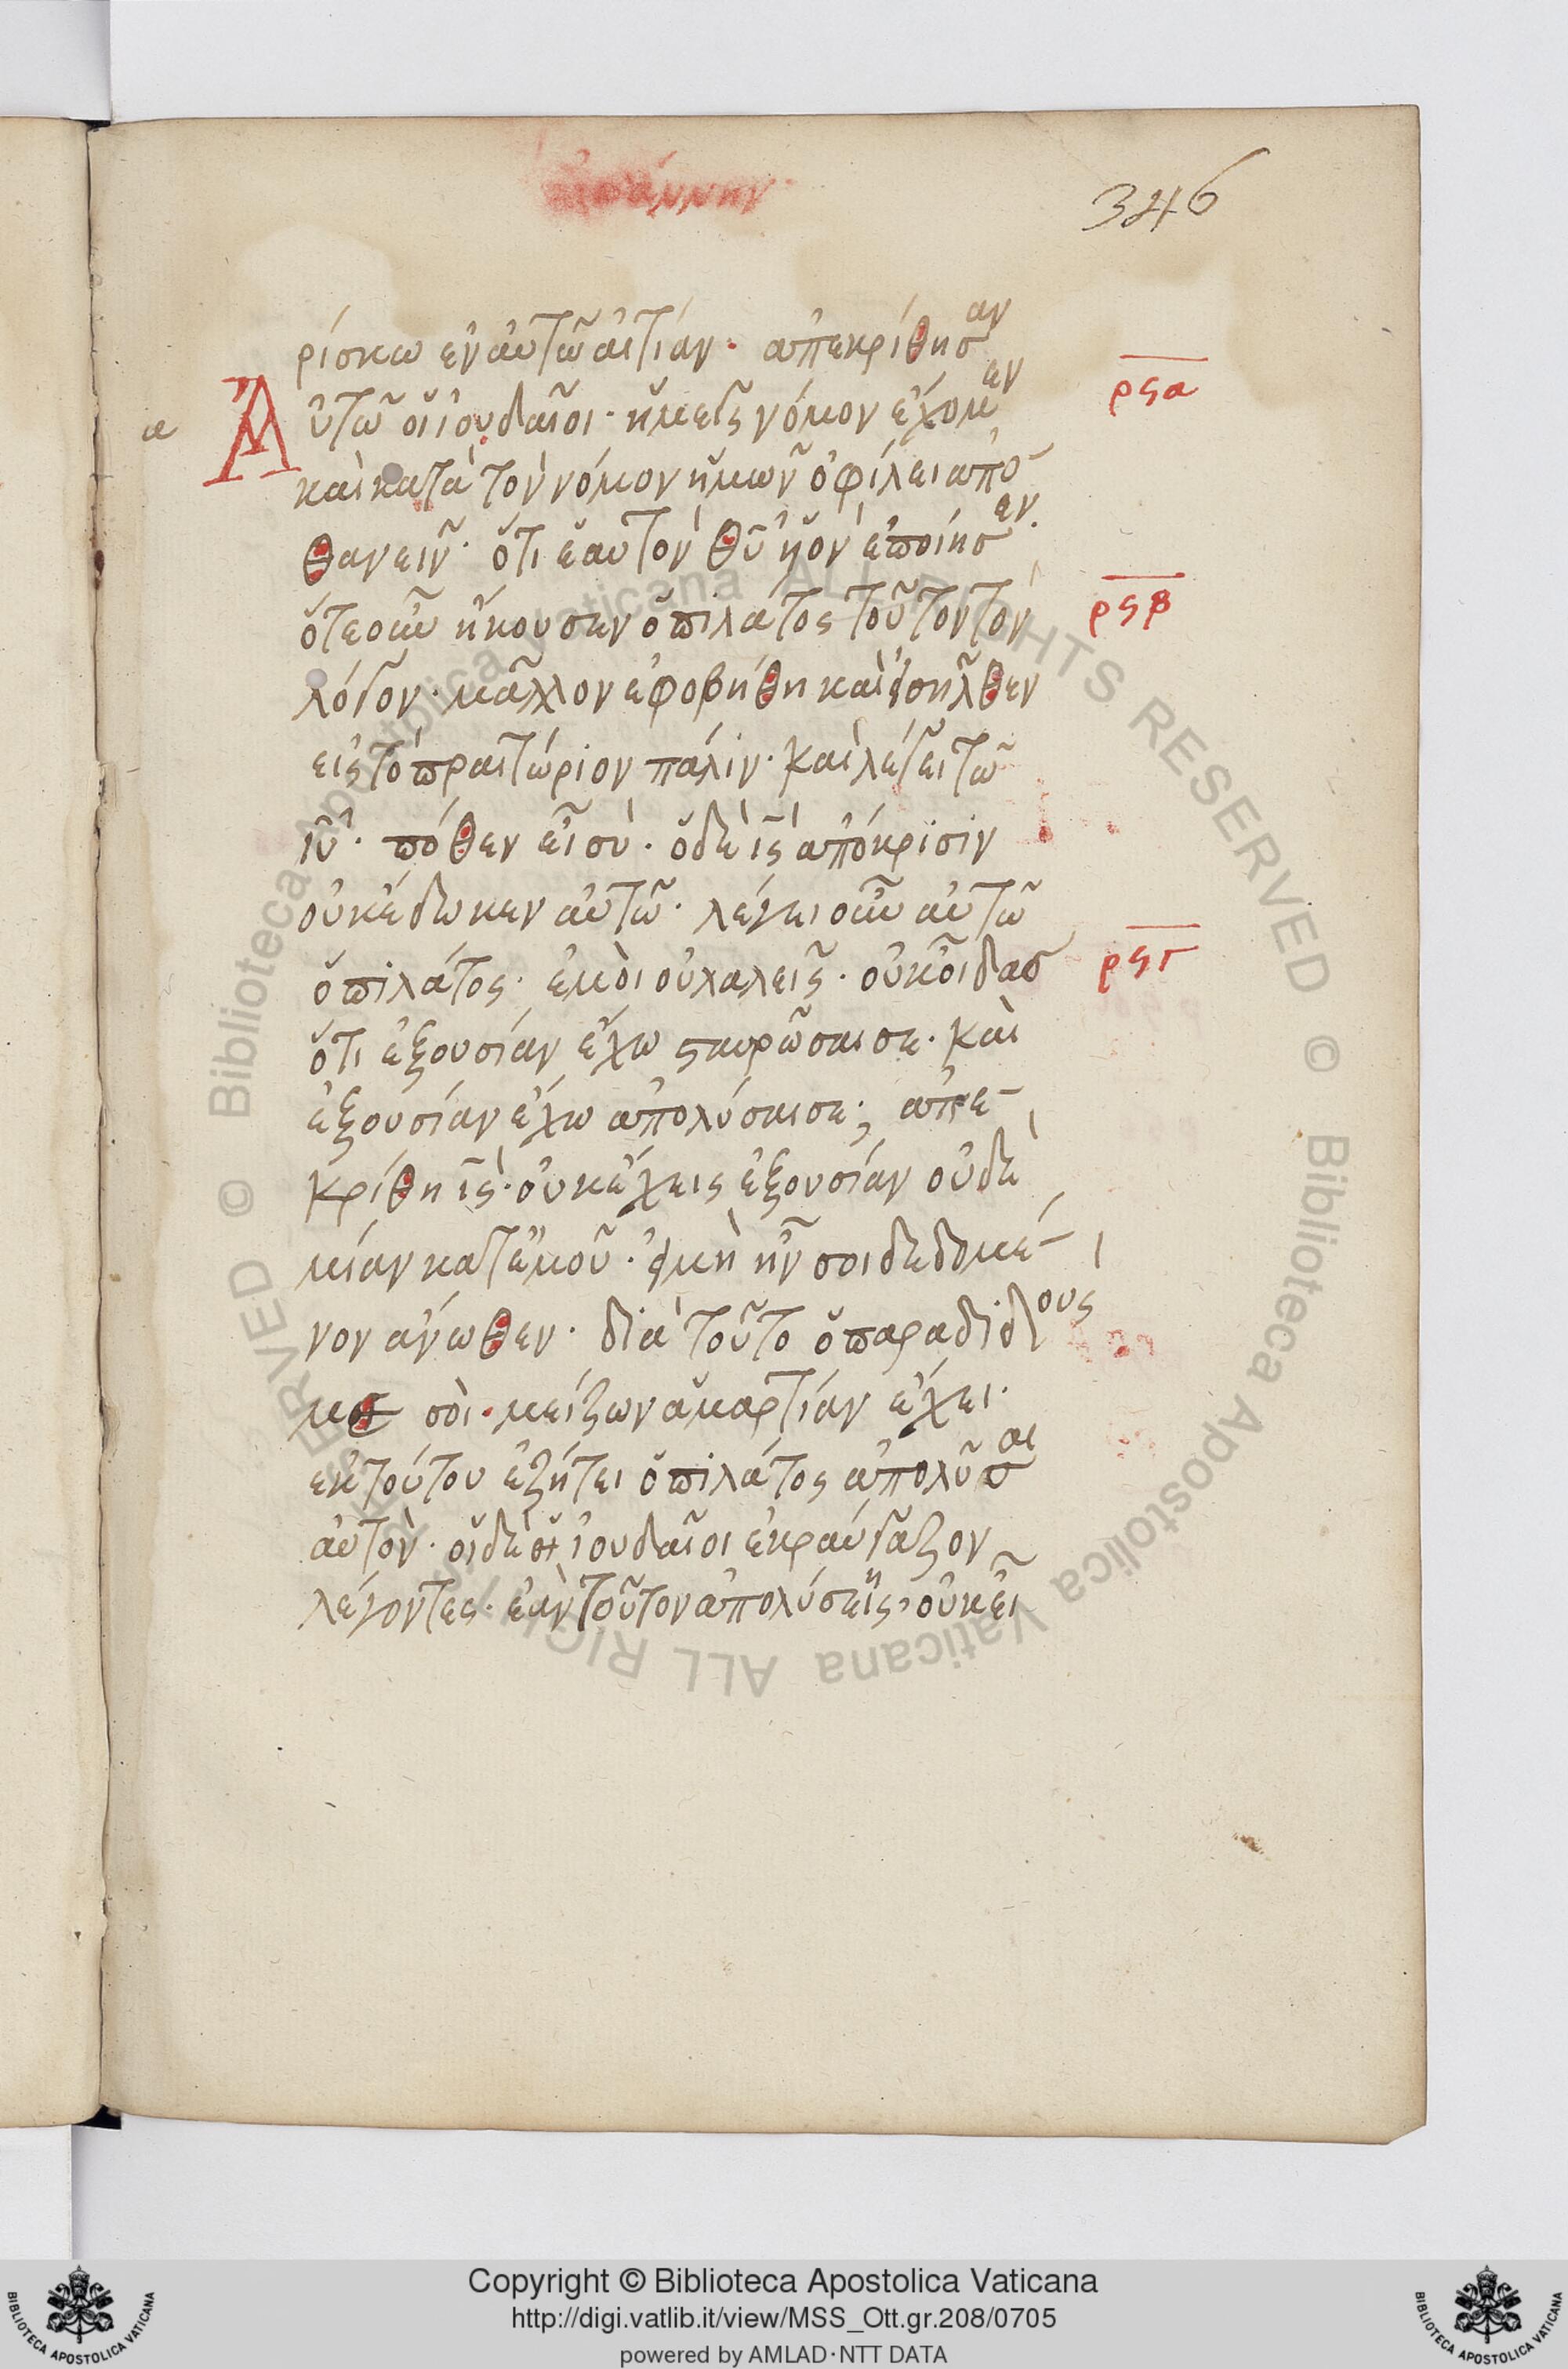 ἰωάννην
346
ρίσκω ἐν ἀυτῶ ἀιτίαν · ἀπεκρίθησαν
Αὐτῶ οἱ ἰουδαῖοι · ἡμεῖς νόμον ἔχομεν
ρςα
α
καὶ κατὰ τὸν νόμον ἡμῶν ὀφίλει ἀπο
θανεῖν · ὅτι ἑαυτὸν θῦ ὑὸν ἐποίησεν ·
ὅτε οὖν ἤκουσεν ὁ πιλάτος τοῦτον τὸν
ρςβ
λόγον · μᾶλλον ἐφοβήθη καὶ εἰσῆλθεν
εἰς τὸ πραιτώριον πάλιν · καὶ λέγει τῶ
ιῦ · πόθεν εἶ σύ · ὁ δὲ ις ἀπόκρισιν
οὐκ ἔδωκεν ἀυτῶ · λέγει οὖν ἀυτῶ
ὁ πιλάτος · ἐμοὶ οὐ λαλεῖς · οὐκ οἶδας
ρςγ
ὅτι ἐξουσίαν ἔχω ςαυρῶσαι σε · καὶ
ἐξουσίαν ἔχω ἀπολύσαι σε; ἀπε
κρίθη ις · οὐκ ἔχεις ἐξουσίαν οὐδε
μίαν κατ ἐμοῦ · εἰ μὴ ἦν σοι δεδομέ
νον ἄνωθεν · διὰ τοῦτο ὁ παραδιδους
με σοὶ · μείζων ἁμαρτίαν ἔχει ·
ἐκ τούτου ἐζήτει ὁ πιλάτος ἀπολῦσαι
ἀυτὸν · οἱ δὲ ἰουδαῖοι ἐκραύγαζον
λέγοντες · ἐὰν τοῦτον ἀπολύσεις, οὐκ εἶ
Copyright © Biblioteca Apostolica Vaticana
http://digi.vatlib.it/view/MSS_Ott.gr.208/0705
powered by AMLAD·NTT DATA
© Biblioteca Apostolica Vaticana ALL RIGHTS RESERVED © Biblioteca Apostolica Vaticana ALL RIGHTS RESERVED
BIBLIOTECA APOSTOLICA VATICANA
BIBLIOTECA APOSTOLICA VATICANA